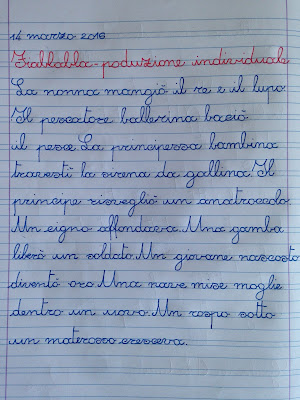 14 marzo 2016
Fiabblabla-poduzione individuale
La nonna mangiò il re e il lupo.
Il pescatore ballerina baciò
il pesce. La principessa bambina
travestì la sirena da gallina. Il
principe risvegliò un anatroccolo.
Un cigno affondava. Una gamba
liberò un soldato. Un giovane nascosto
diventò oro. Una nave mise moglie
dentro un uovo. Un rospo sotto
un materasso cresceva.